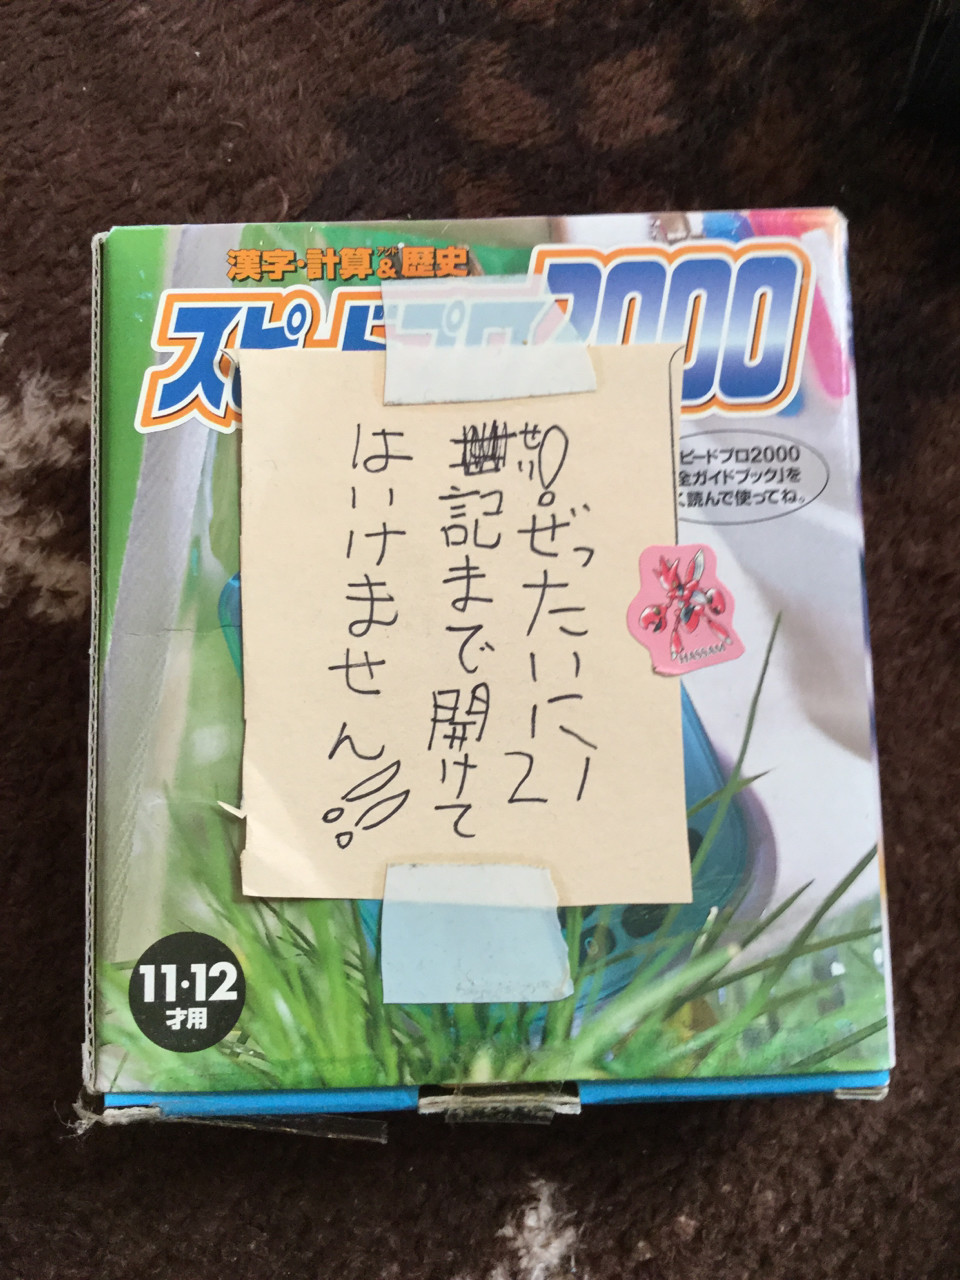 漢字・計算&歴史
アンド
スピードプロ2000
ピードプロ2000
全ガイドブック」を
読んで使ってね。
!ぜったいに21
せい
記まで開けて
はいけません!!
HASSAM
11・12
才用